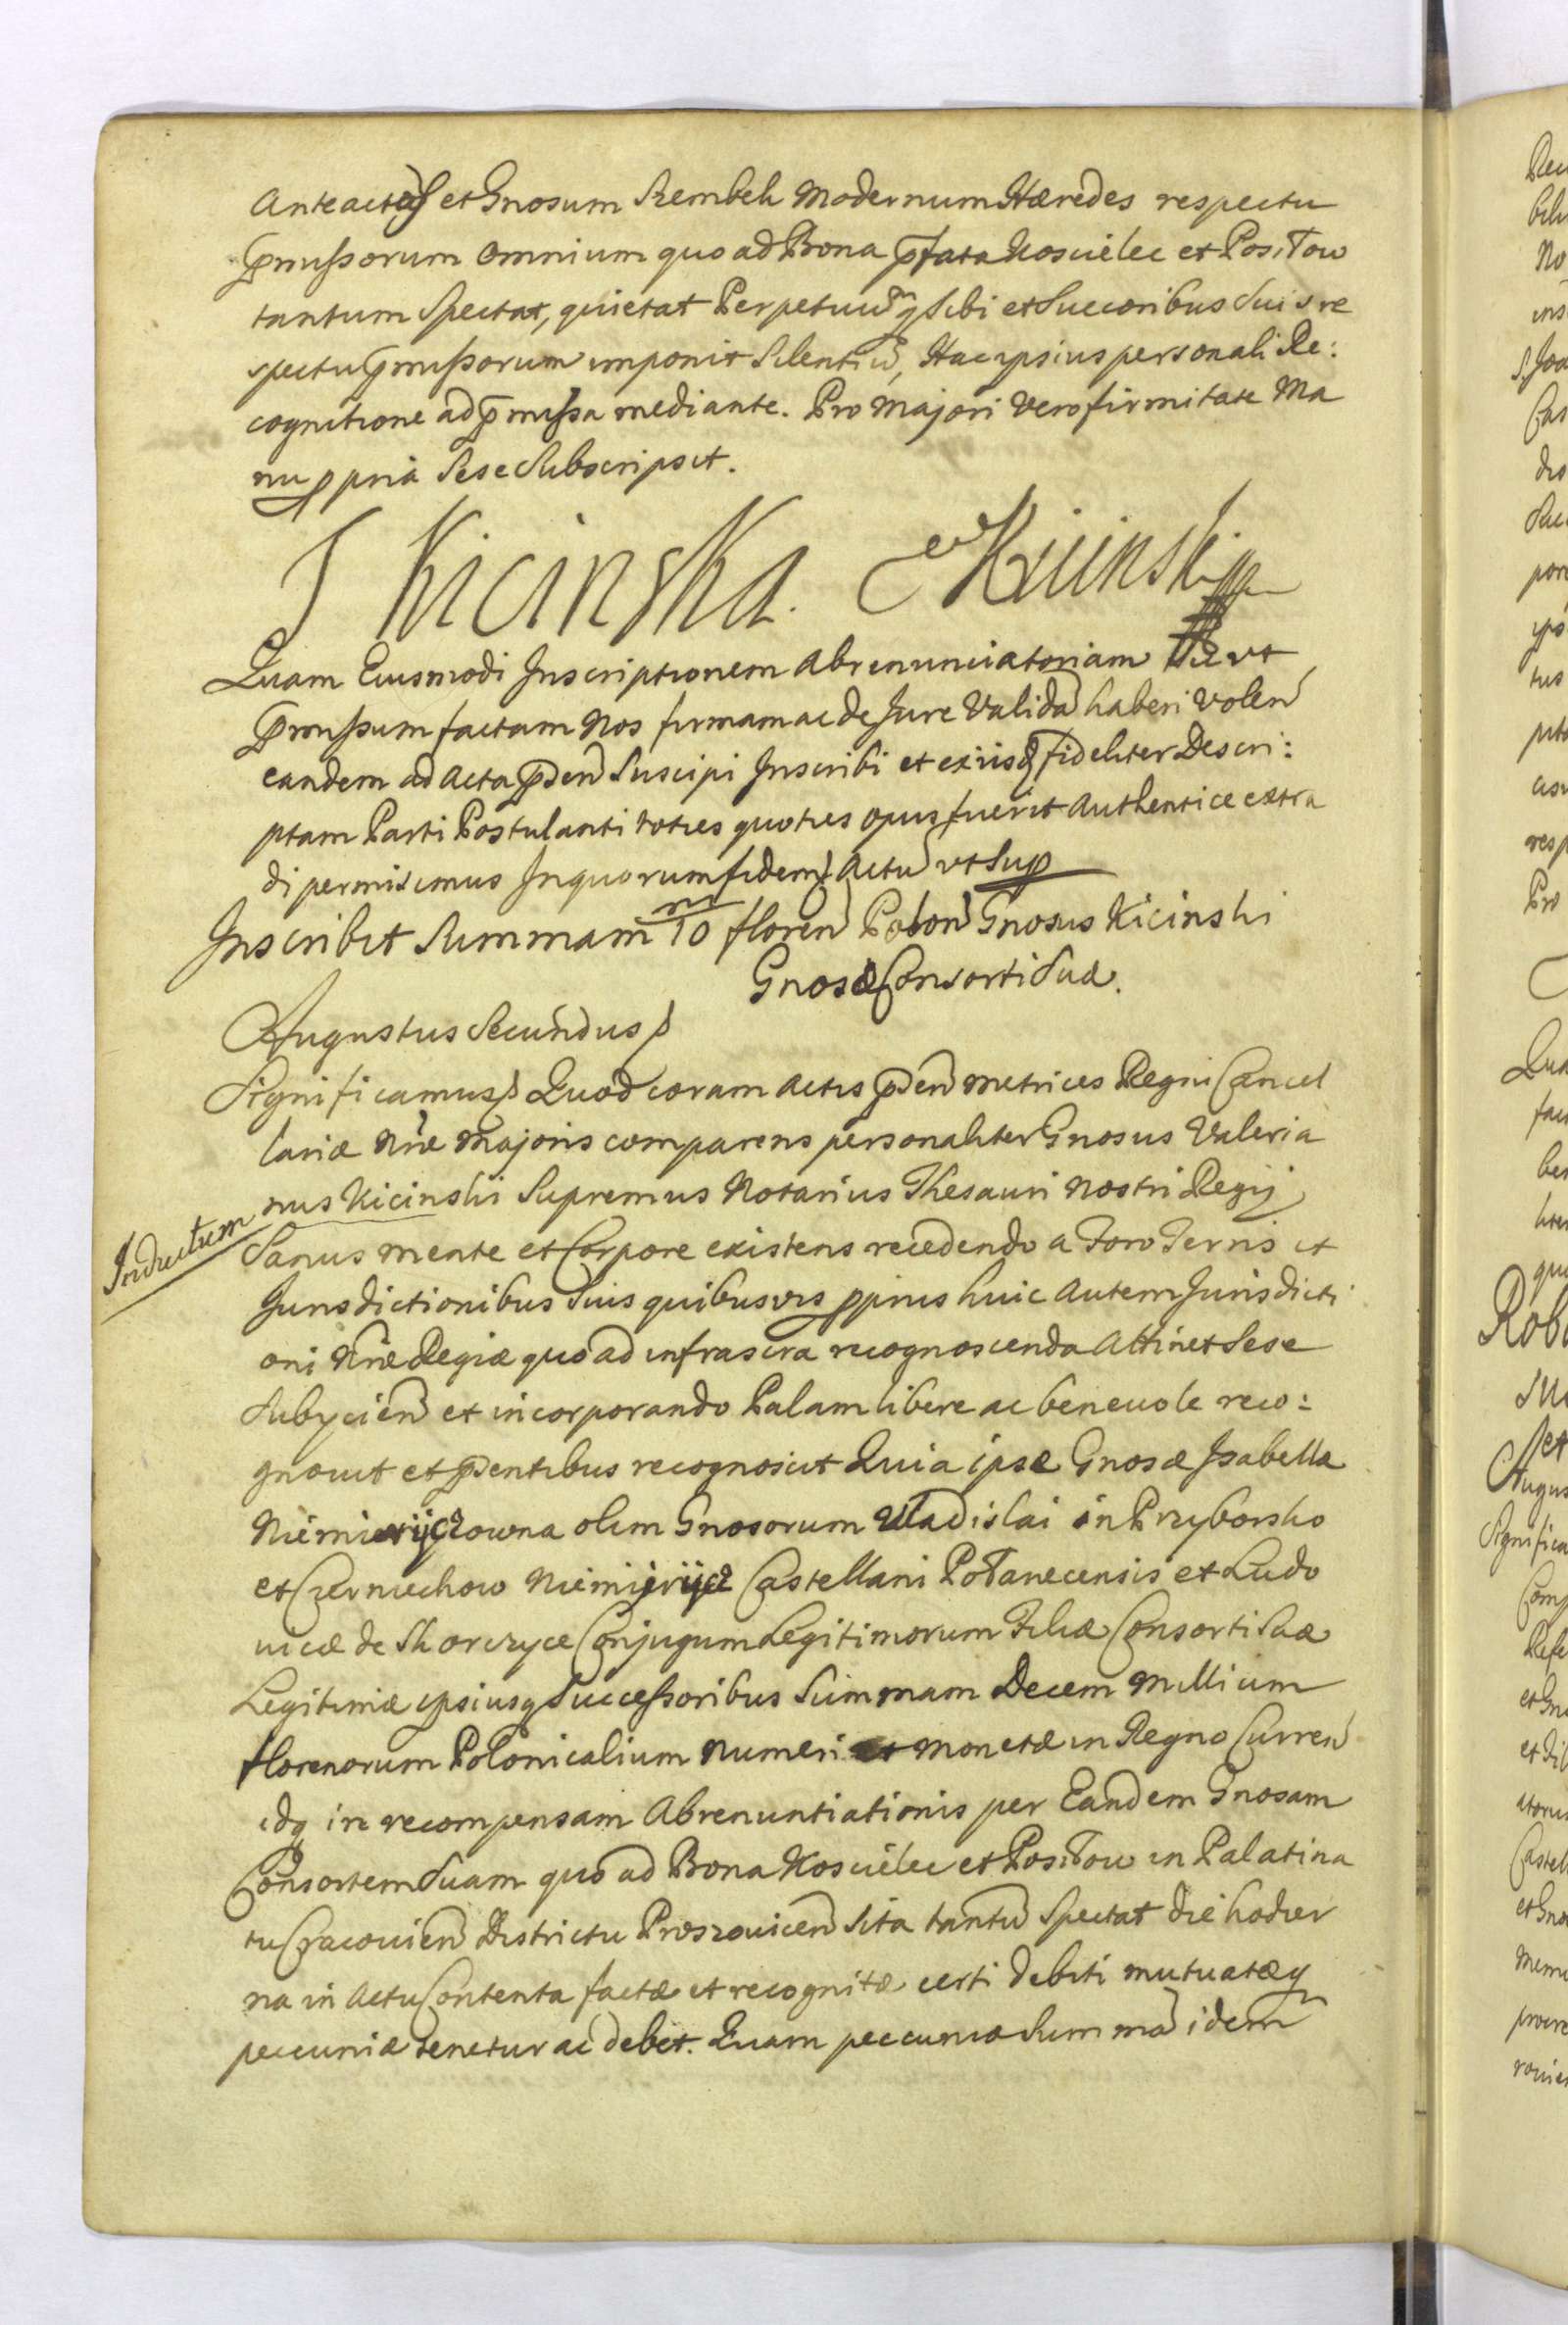 Anteactos et Gnosum Szembek Modernum Hæredes respectu
p̃missorum omnium quo ad Bona p̃fata Kościelec et Positow
tantum Spectat, quietat Perpetuũq Sibi et Succoribus Suis re
spectu p̃missorum imponit Silentiũ, Hac ipsius personali Re:
cognitione ad p̃missa mediante. Pro Majori Vero firmitate Ma
nu ppria Sese Subscripsit.
J Kicinska. Kicinski
Quam Eiusmodi Inscriptionem Abrenunciatoriam ut
p̃missum factam Nos firmam ac de Jure Validã haberi Volen
eandem ad Acta p̃sen Suscipi Inscribi et ex iisdẽ fideliter Descri:
ptam Parti Postulanti toties quoties opus fuerit Authentice extra
di permisimus In quorum fidem Actũ ut Sup
Inscribit Summam 10 m floren Polon Gnosus Kicinski
Gnosæ Consorti Suæ.
Augustus Secundus
Significamus Quod coram Actis p̃sen Metrices Regni Cancel
lariæ Nræ Majoris comparens personaliter Gnosus Valeria
nus Kicinski Supremus Notarius Thesauri Nostri Regij
Indultum
Sanus mente et Corpore existens recedendo a Foro Terris et
Jurisdictionibus Suis quibusvis pprijs huic Autem Jurisdicti
oni Nræ Regiæ quo ad infrascra recognoscenda Attinet Sese
Subijcien et incorporando Palam libere ac benevole reco:
gnovit et p̃sentibus recognoscit Quia ipse Gnosæ Isabellæ
Niemierijczowna olim Gnosorum Vladislai in Przyborsko
et Czerniechow Niemierijcz Castellani Połanecensis et Ludo
vicæ de Skorczyce Conjugum Legitimorum Filiæ Consorti Suæ
Legitimæ ipsiusq Successoribus Summam Decem Millium
florenorum Polonicalium Numeri et Monetæ in Regno Curren
idq in recompensam Abrenuntiationis per Eandem Gnosam
Consortem Suam quo ad Bona Kościelec et Positow in Palatina
tu Cracovien Districtu Proszovicen Sita tantũ Spectat die hodier
na in Actu Contenta factæ et recognitæ certi debiti mutuatæq
pecuniæ tenetur ac debet. Quam peccuniæ Summã idem